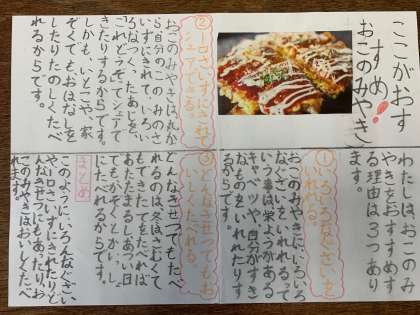 ここがおす
すめ!
おこのみやき
わたしはおこのみ
やきをおすすめす
る理由は3つあり
ます。
①いろいろなぐざいを
いれれる。
おこのみやきに、いろいろ
なぐざいをいれれると
いう事は栄ようがある
キャベツや、自分がすき
なものを、いれれたりす
るからです。
②一口さいずにきれて
シェアできる。
おこのみやきは丸か
ら自分のこのみのさ
いずにきれて、いろい
ろなつく、たあじを、
これどうぞてシェアて
きたりするからです。
しかも、いとこや、家
ぞくでも、おはなしを
したりたのしくたべ
れるからです。
③どんなきせつでもお
いしくたべれる。
どんなきせつてもたべ
れるのは、冬はさむくて
もてきたてをたべれば
あたたまるしあつい日
でもかぞくとかいっし
にたべれるからです。
まとめ
このように、いろんなぐざい
や一口さいずにきれたりど
んなきせつにもあったり、お
このみやきはおいしくたべ
れます。